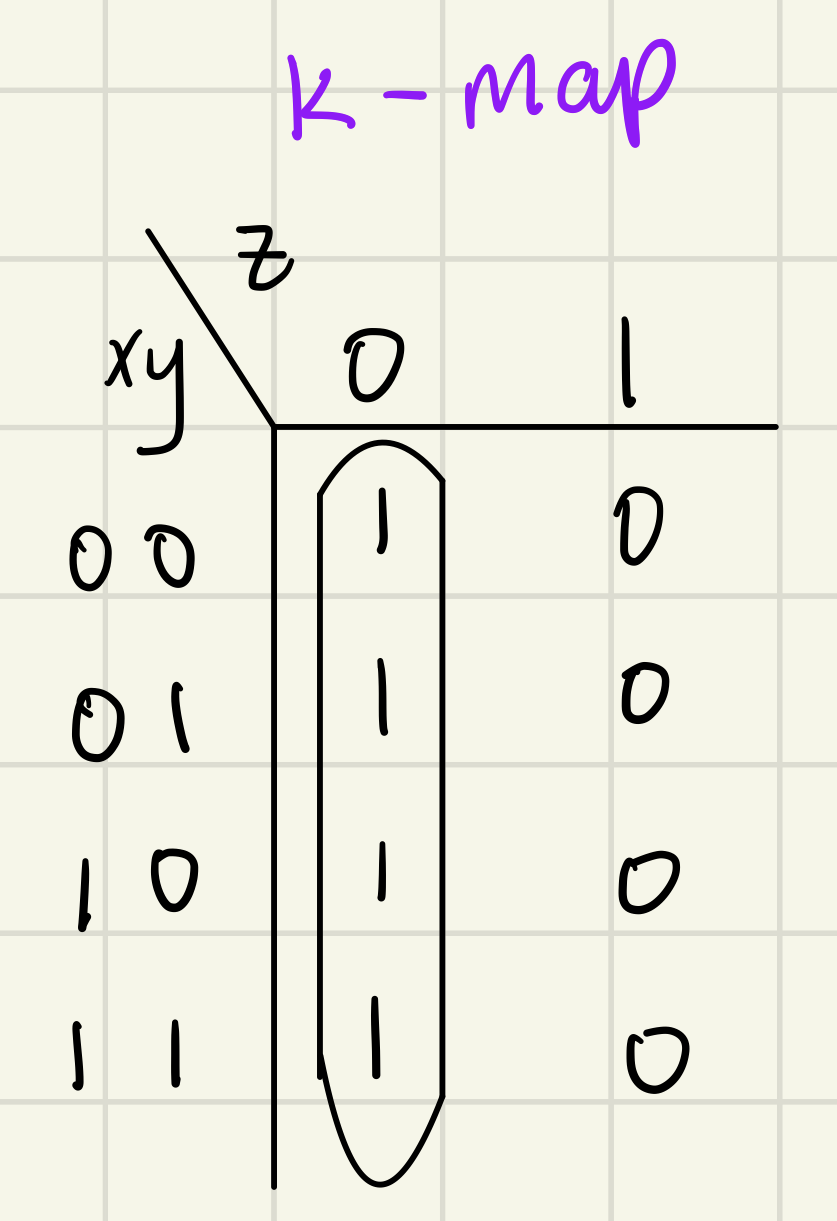 K-map
z
xy 0 1
00 1 0
01 1 0
10 1 0
11 1 0